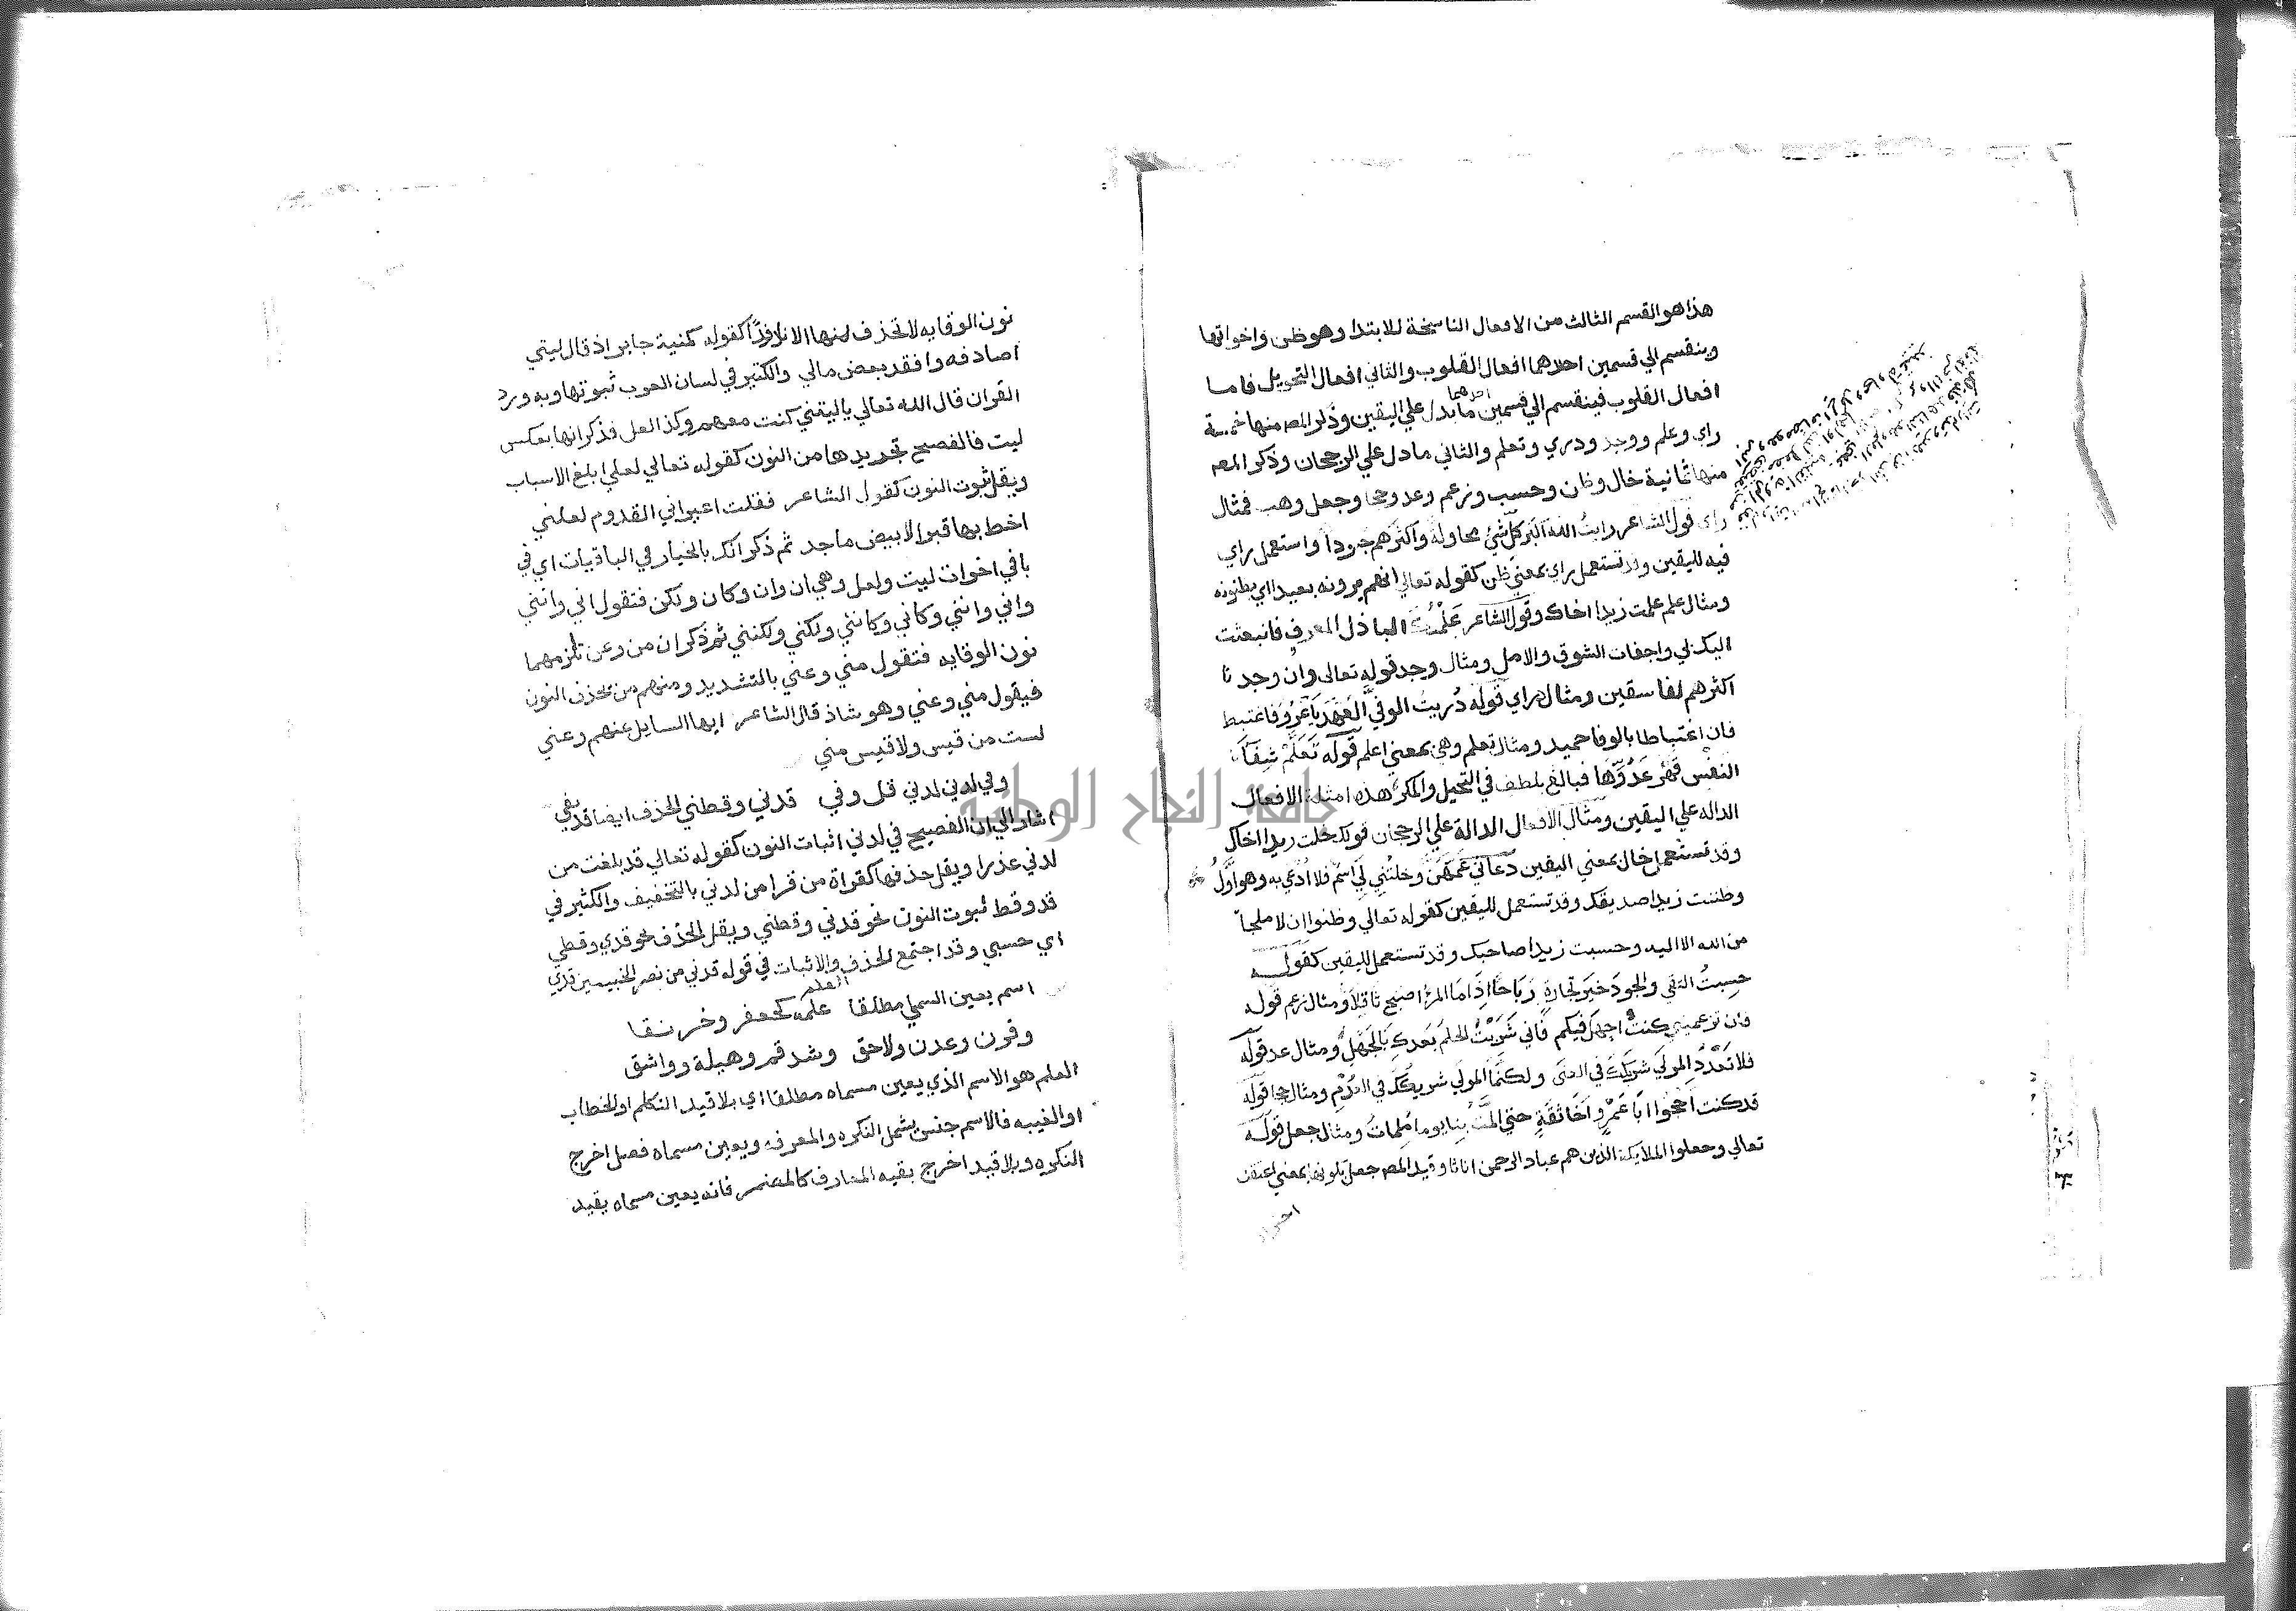 هذا هو القسم الثالث من الافعال الناسخة للابتدا وهو ظن واخواتها
وينقسم الي قسمين احدهما افعال القلوب والثاني افعال التحويل فاما
افعال القلوب فينقسم الي قسمين احدهما ما يدل علي اليقين وذكر المصـ منها خمسة
راي وعلم ووجد ودري وتعلم والثاني ما دل علي الرجحان وذكر المصـ
منها ثمانية خال وظن وحسب وزعم وعد وحجا وجعل وهب فمثال
راي قول الشاعر رايتُ اللهَ اكبَر كلِّ شيْءٍ محاولةً واكثرَهم جنوداً واستعمل راي
فيه لليقين وقد تستعمل راي بمعني ظن كقوله تعالي انهم يرونه بعيدا اي يظنونه
ومثال علم علمت زيدا اخاك وقول الشاعر عَلمْتُكَ الباذل المعروف فانبعثت
اليك بي واجفات الشوق والامل ومثال وجد قوله تعالي وان وجدنا
اكثرهم لفاسقين ومثال دراي قوله دُريتُ الوفيَّ العَهْدَ يا عُرْوَ فاغتبط
فان اغتباطا بالوفا حميد ومثال تعلم وهي بمعني اعلم قوله تَعَلَّمْ شِفَآءَ
النفْسِ قَهْرَ عَدُوِّهَا فبالغ بلطف في التحيل والمكر هذه امثلة الافعال
الداله علي اليقين ومثال الافعال الدالة علي الرجحان قولك خلت زيدا اخاك
وقد تستعمل خال بمعني اليقين دَعَاني عَمُّهُنَّ وخلتُني لِي اسْمٌ فلا اُدْعي به وهو اَوّلُ
وظننت زيدا صديقك وقد تستعمل لليقين كقوله تعالي وظنوا ان لا ملجأ
من الله الا اليه وحسبت زيدا صاحبك وقد تستعمل لليقين كقوله
حسِبتُ التقي والجودَ خيرَ تجارةٍ رَبَاحًا اِذَا مَا المرءُ اصبح ثاقلاً ومثال زعم قوله
فان تزعميني كنتُ اجهل فيكم فاني شَرَيْتُ الحلمَ بَعدكِ بالجَهْلِ ومثال عد قوله
فلا تَعْدُدِ المولَي شريكَكَ في الغني ولكنّمَا المولي شريكُكَ في العُدْمِ ومثال حجا قوله
قد كنت اَحْجُوا ابَا عَمْرٍو اَخَا ثِقَةٍ حتي المّتْ بنا يوما مُلِمَّاتُ ومثال جعل قوله
تعالي وجعلوا الملايكة الذين هم عباد الرحمن اناثا وقيد المصـ جعل بكونها بمعني اعتقد
نون الوقايه لا تحذف منها الا نادرا كقوله كمنية جابر اذ قال ليتي
اصادفه وافقد بعض مالي والكثير في لسان العرب ثبوتها وبه ورد
القران قال الله تعالي ياليتني كنت معهم وكذا لعل فذكر انها بعكس
ليت فالفصيح تجريدها من النون كقوله تعالي لعلي ابلغ الاسباب
ويقل ثبوت النون كقول الشاعر فقلت اعيراني القدوم لعلني
اخط بها قبرا لابيض ماجد ثم ذكر انك بالخيار في الباقيات اي في
باقي اخوات ليت ولعل وهي ان وان وكان ولكن فتقول اني وانني
واني وانني وكاني وكانني ولكني ولكنني ثم ذكر ان من وعن تلزمهما
نون الوقايه فتقول مني وعني بالتشديد ومنهم من يحذف النون
فيقول مني وعني وهو شاذ قال الشاعر ايها السايل عنهم وعني
لست من قيس ولا قيس مني
وفي لدني لدني قل وفي قدني وقطني الحذف ايضا قد يفي
اشار الي ان الفصيح في لدني اثبات النون كقوله تعالي قد بلغت من
لدني عذرا ويقل حذفها كقراة من قرا من لدني بالتخفيف والكثير في
قد وقط ثبوت النون نحو قدني وقطني ويقل الحذف نحو قدي وقطي
اي حسبي وقد اجتمع الحذف والاثبات في قوله قدني من نصر الخبيبين قدي
العلم
اسم يعين المسمي مطلقا علمه كجعفر وخرنقا
وقرن وعدن ولاحق وشدقم وهيلة وواشق
العلم هو الاسم الذي يعين مسماه مطلقا اي بلا قيد التكلم او الخطاب
او الغيبه فالاسم جنس يشمل النكره والمعرفه ويعين مسماه فصل اخرج
النكره وبلا قيد اخرج بقيه المعارف كالمضمر فانه يعين مسماه بقيد
جامعة النجاح الوطنية